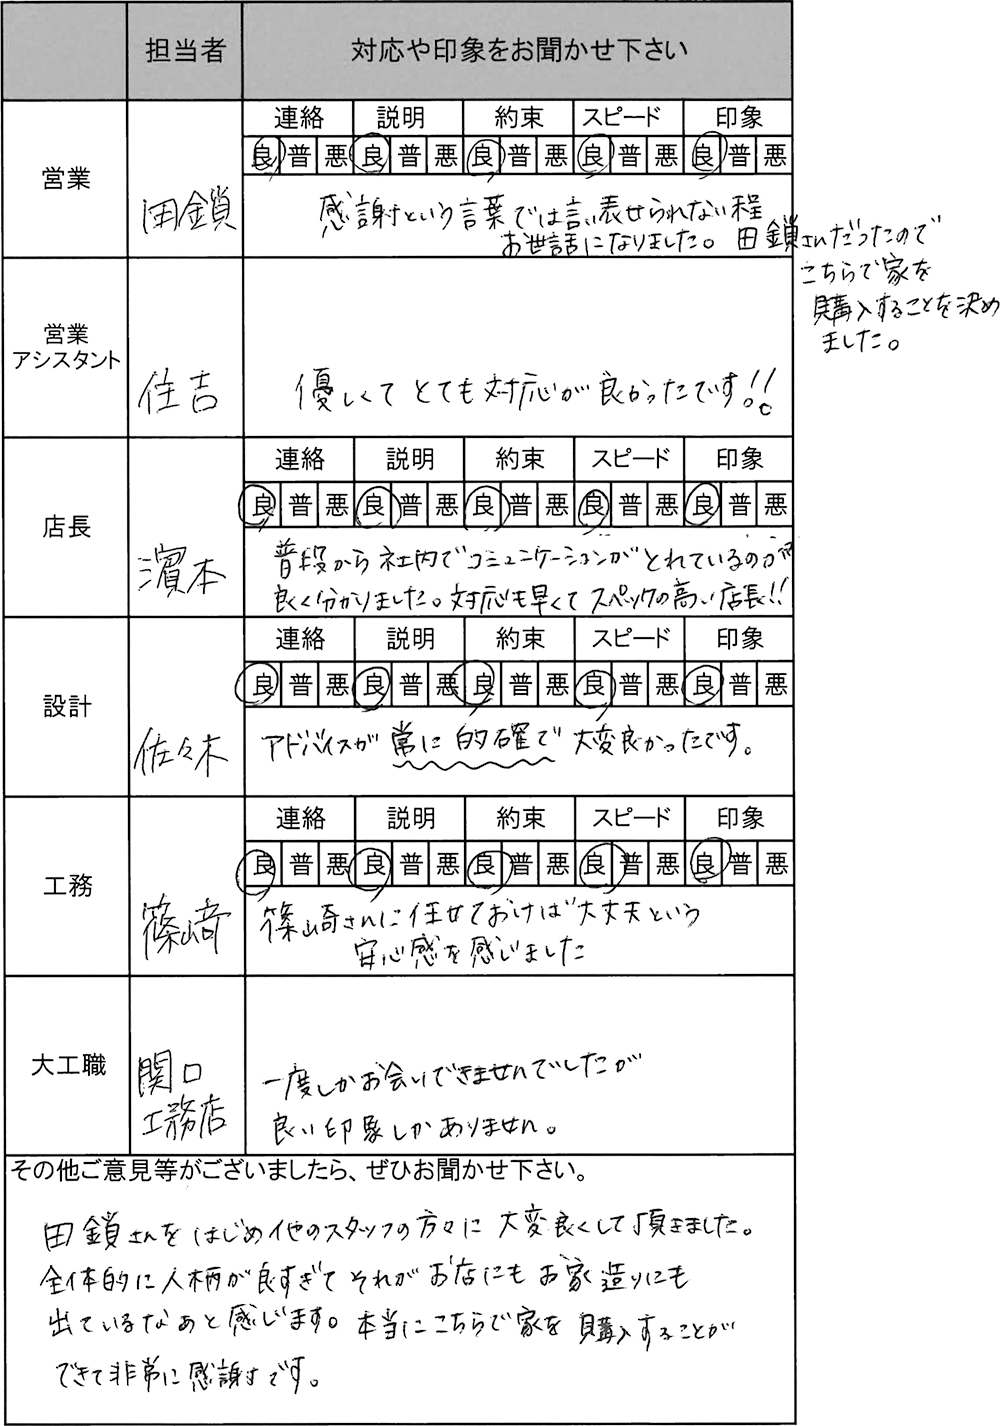 担当者 対応や印象をお聞かせ下さい
連絡 説明 約束 スピード 印象
良 普 悪 良 普 悪 良 普 悪 良 普 悪 良 普 悪
営業
田鎖
感謝という言葉では言い表せられない程
お世話になりました。田鎖さんだったので
こちらで家を
購入することを決め
ました。
営業
アシスタント
住吉
優しくてとても対応が良かったです!!
連絡 説明 約束 スピード 印象
良 普 悪 良 普 悪 良 普 悪 良 普 悪 良 普 悪
店長
濱本
普段から社内でコミュニケーションがとれているのが
良く分かりました。対応も早くてスペックの高い店長!!
連絡 説明 約束 スピード 印象
良 普 悪 良 普 悪 良 普 悪 良 普 悪 良 普 悪
設計
佐々木
アドバイスが常に的確で大変良かったです。
連絡 説明 約束 スピード 印象
良 普 悪 良 普 悪 良 普 悪 良 普 悪 良 普 悪
工務
篠﨑
篠﨑さんに任せておけば大丈夫という
安心感を感じました
大工職
関口
工務店
一度しかお会いできませんでしたが
良い印象しかありません。
その他ご意見等がございましたら、ぜひお聞かせ下さい。
田鎖さんをはじめ他のスタッフの方々に大変良くして頂きました。
全体的に人柄が良すぎてそれがお店にもお家造りにも
出ているなあと感じます。本当にこちらで家を購入することが
できて非常に感謝です。